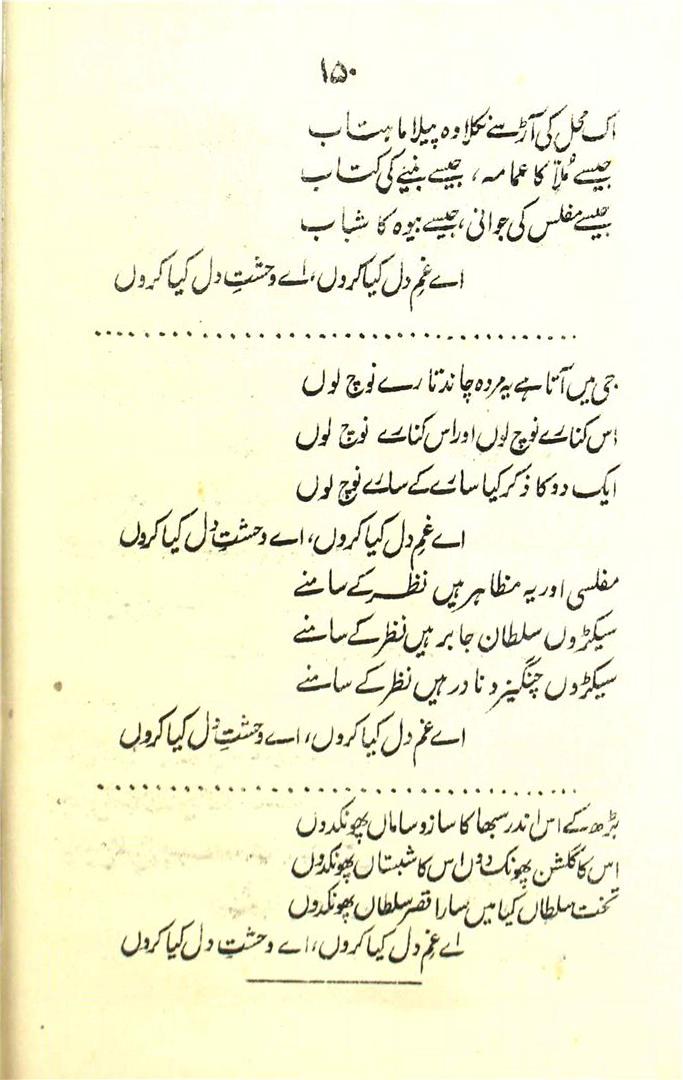 ۱۵۰
اک محل کی آڑ سے نکلا وہ پیلا ماہتاب
جیسے مُلّا کا عمامہ، جیسے بنیے کی کتاب
جیسے مفلس کی جوانی، جیسے بیوہ کا شباب
اے غمِ دل کیا کروں، اے وحشتِ دل کیا کروں
جی میں آتا ہے یہ مردہ چاند تارے نوچ لوں
اس کنارے نوچ لوں اور اس کنارے نوچ لوں
ایک دو کا ذکر کیا سارے کے سارے نوچ لوں
اے غمِ دل کیا کروں، اے وحشتِ دل کیا کروں
مفلسی اور یہ مظاہر ہیں نظر کے سامنے
سیکڑوں سلطان جابر ہیں نظر کے سامنے
سیکڑوں چنگیز و نادر ہیں نظر کے سامنے
اے غمِ دل کیا کروں، اے وحشتِ دل کیا کروں
بڑھ کے اس اندر سبھا کا ساز و ساماں پھونکدوں
اس کا گلشن پھونک دوں اس کا شبستاں پھونکدوں
تخت سلطاں کیا میں سارا قصر سلطاں پھونکدوں
اے غمِ دل کیا کروں، اے وحشتِ دل کیا کروں